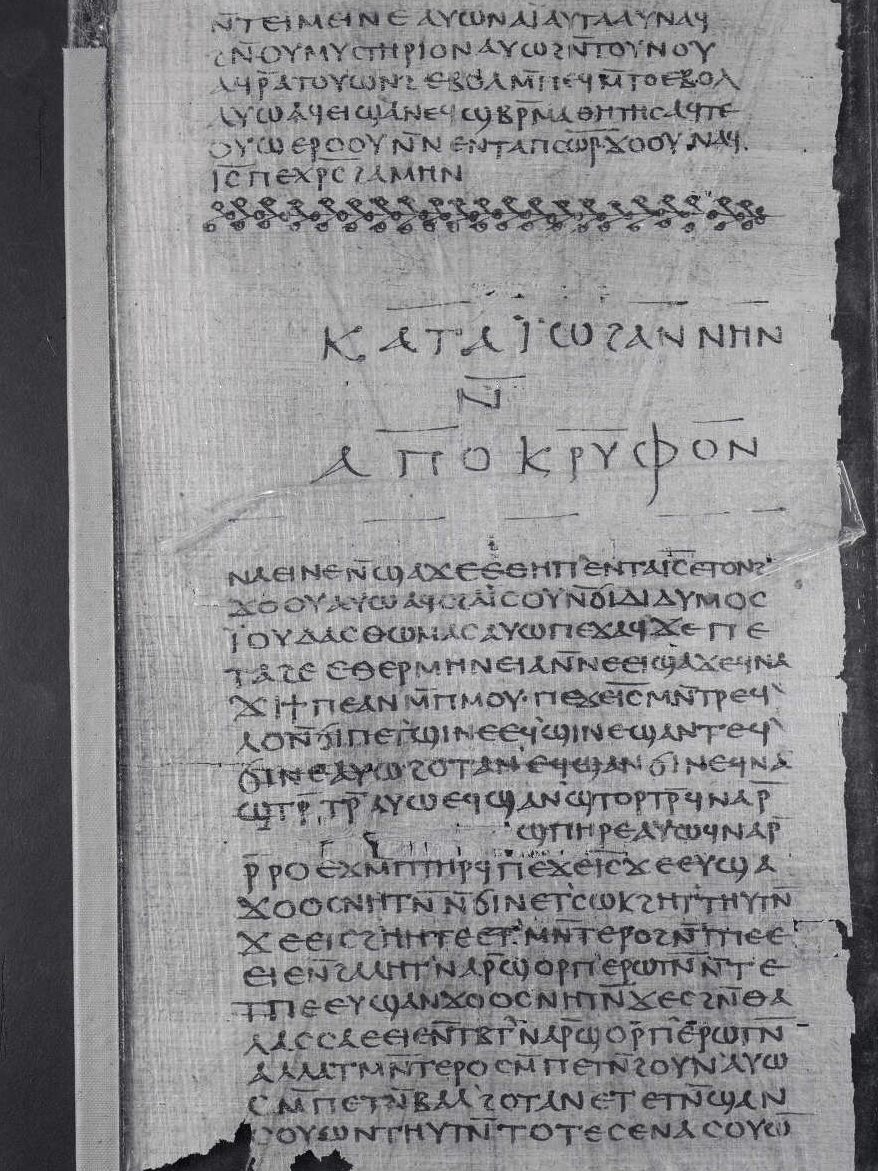 ⲛ̄ⲧⲉⲓⲙⲉⲓⲛⲉ ⲁⲩⲱ ⲛⲁⲓ̈ ⲁⲩⲧⲁⲁⲩ ⲛⲁϥ
ϩⲛ̄ ⲟⲩⲙⲩⲥⲧⲏⲣⲓⲟⲛ ⲁⲩⲱ ϩⲛ̄ ⲧⲟⲩⲛⲟⲩ
ⲁϥⲣ̄ⲁⲧⲟⲩⲱⲛϩ ⲉⲃⲟⲗ ⲙ̄ⲡⲉϥⲙ̄ⲧⲟ ⲉⲃⲟⲗ
ⲁⲩⲱ ⲁϥⲉⲓ ϣⲁ ⲛⲉϥϣⲃⲣ̄ⲙⲁⲑⲏⲧⲏⲥ ⲁϥⲧⲉ
ⲟⲩⲱ ⲉⲣⲟⲟⲩ ⲛ̄ⲛⲉⲛⲧⲁ ⲡⲥⲱ̅ⲣ̅ ϫⲟⲟⲩ ⲛⲁϥ
ⲓ̅ⲥ̅ ⲡⲉⲭ̅ⲣ̅ⲥ̅ ϩⲁⲙⲏⲛ
ⲕⲁⲧⲁ ⲓ̈ⲱϩⲁⲛⲛⲏⲛ
ⲛ̄
ⲁⲡⲟⲕⲣⲩⲫⲟⲛ
ⲛⲁⲉⲓ ⲛⲉ ⲛ̄ϣⲁϫⲉ ⲉⲑⲏⲡ ⲉⲛⲧⲁ ⲓ̅ⲥ̅ ⲉⲧⲟⲛϩ
ϫⲟⲟⲩ ⲁⲩⲱ ⲁϥⲥϩⲁⲓ̈ⲥⲟⲩ ⲛ̄ϭⲓ ⲇⲓⲇⲩⲙⲟⲥ
ⲓ̈ⲟⲩⲇⲁⲥ ⲑⲱⲙⲁⲥ ⲁⲩⲱ ⲡⲉϫⲁϥ ϫⲉ ⲡⲉ
ⲧⲁϩⲉ ⲉⲑⲉⲣⲙⲏⲛⲉⲓⲁ ⲛ̄ⲛⲉⲉⲓϣⲁϫⲉ ϥⲛⲁ
ϫⲓ ϯⲡⲉ ⲁⲛ ⲙ̄ⲡⲙⲟⲩ ⲡⲉϫⲉ ⲓ̅ⲥ̅ ⲙⲛ̄ⲧⲣⲉϥ
ⲗⲟ ⲛ̄ϭⲓ ⲡⲉⲧϣⲓⲛⲉ ⲉϥϣⲓⲛⲉ ϣⲁⲛⲧⲉϥ
ϭⲓⲛⲉ ⲁⲩⲱ ϩⲟⲧⲁⲛ ⲉϥϣⲁⲛϭⲓⲛⲉ ϥⲛⲁ
ϣⲧⲣ̄ⲧⲣ̄ ⲁⲩⲱ ⲉϥϣⲁⲛϣⲧⲟⲣⲧⲣ̄ ϥⲛⲁⲣ̄
ϣⲡⲏⲣⲉ ⲁⲩⲱ ϥⲛⲁⲣ̄
ⲣ̄ⲣⲟ ⲉϫⲙ̄ ⲡⲧⲏⲣϥ ⲡⲉϫⲉ ⲓ̅ⲥ̅ ϫⲉ ⲉⲩϣⲁ
ϫⲟⲟⲥ ⲛⲏⲧⲛ̄ ⲛ̄ϭⲓ ⲛⲉⲧⲥⲱⲕ ϩⲏⲧ ⲧⲏⲩⲧⲛ̄
ϫⲉ ⲉⲓⲥϩⲏⲏⲧⲉ ⲉⲧⲙⲛ̄ⲧⲉⲣⲟ ϩⲛ̄ ⲧⲡⲉ ⲉ
ⲉⲓⲉ ⲛ̄ϩⲁⲗⲏⲧ ⲛⲁⲣ̄ ϣⲟⲣⲡ ⲉⲣⲱⲧⲛ̄ ⲛ̄ⲧⲉ
ⲧⲡⲉ ⲉⲩϣⲁⲛϫⲟⲟⲥ ⲛⲏⲧⲛ̄ ϫⲉ ⲥϩⲛ̄ ⲑⲁ
ⲗⲁⲥⲥⲁ ⲉⲉⲓⲉ ⲛ̄ⲧⲃⲧ ⲛⲁⲣ̄ ϣⲟⲣⲡ ⲉⲣⲱⲧⲛ̄
ⲁⲗⲗⲁ ⲧⲙⲛ̄ⲧⲉⲣⲟ ⲥⲙ̄ⲡⲉⲧⲛ̄ϩⲟⲩⲛ ⲁⲩⲱ
ⲥⲙ̄ⲡⲉⲧⲛ̄ⲃⲁⲗ ϩⲟⲧⲁⲛ ⲉⲧⲉⲧⲛ̄ϣⲁⲛ
ⲥⲟⲩⲱⲛ ⲧⲏⲩⲧⲛ̄ ⲧⲟⲧⲉ ⲥⲉⲛⲁⲥⲟⲩⲱ̄